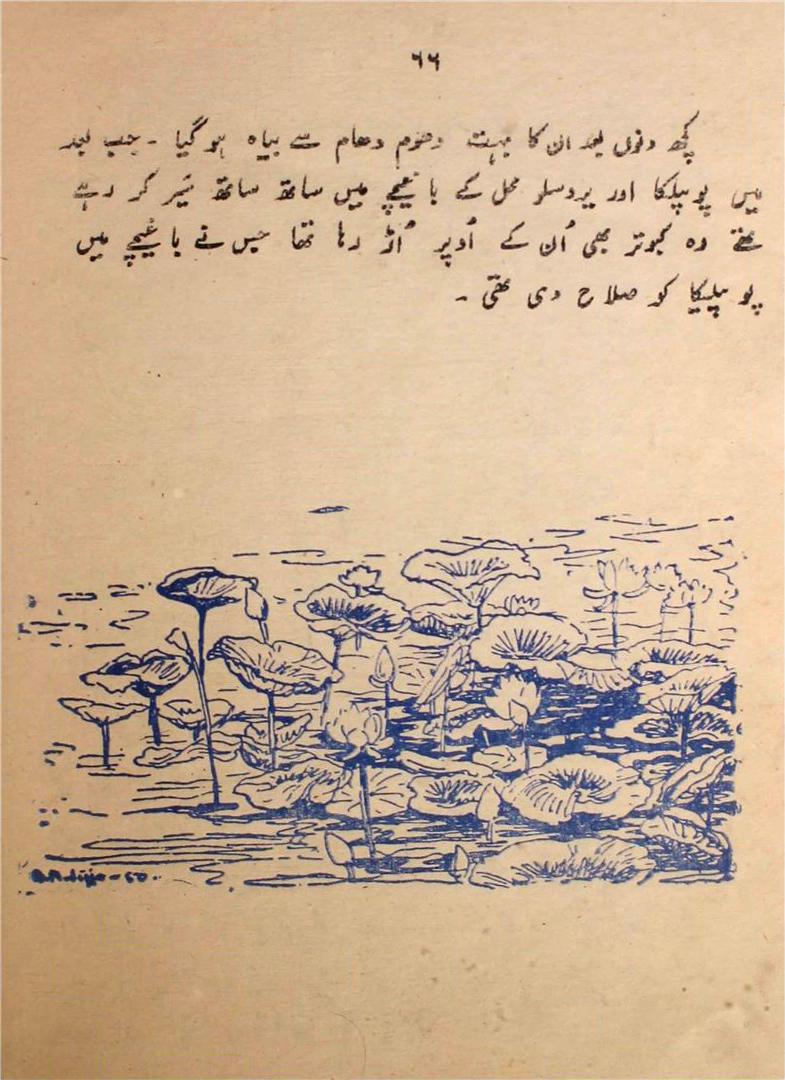 ۶۶
کچھ دنوں بعد ان کا بہت دھوم دھام سے بیاہ ہو گیا ۔ جب بعد
میں پوپلیکا اور پردسلو محل کے باغیچے میں ساتھ ساتھ سَیر کر رہے
تھے وہ کبوتر بھی اُن کے اُوپر اُڑ رہا تھا جس نے باغیچے میں
پوپلیکا کو صلاح دی تھی ۔